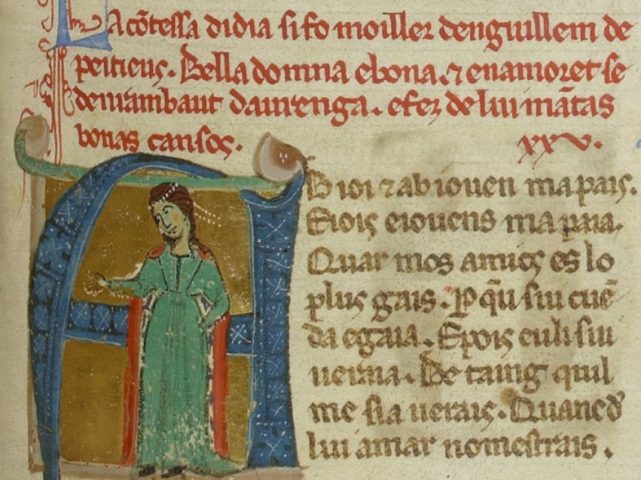 La cõtessa didia si fo moiller denguillem de
peitieus. Bella domna ebona. ⁊ enamoret se
denrambaut daurenga. efez de lui mãtas
bonas cansos. xxv.
AB ioi ⁊ ab iouen mapais.
Eiois eiouens mapaia.
Quar mos amics es lo
plus gais. P qũ siu cuẽ
da egaia. Epois euli siu
ueraia. Be taing quil
me sia uerais. Quanc d̕
lui amar nomestrais.